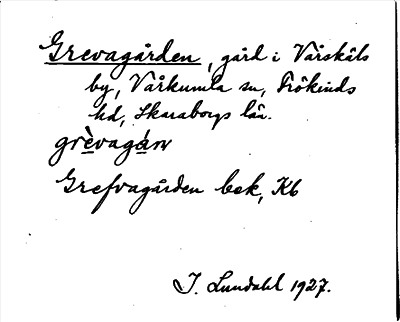 Grevagården, gård i Vårskåls
by, Vårkumla sn, Frökinds
hd, Skaraborgs län.
grèvagáṙn
Grefvagården bek, Kb
I. Lundahl 1927.